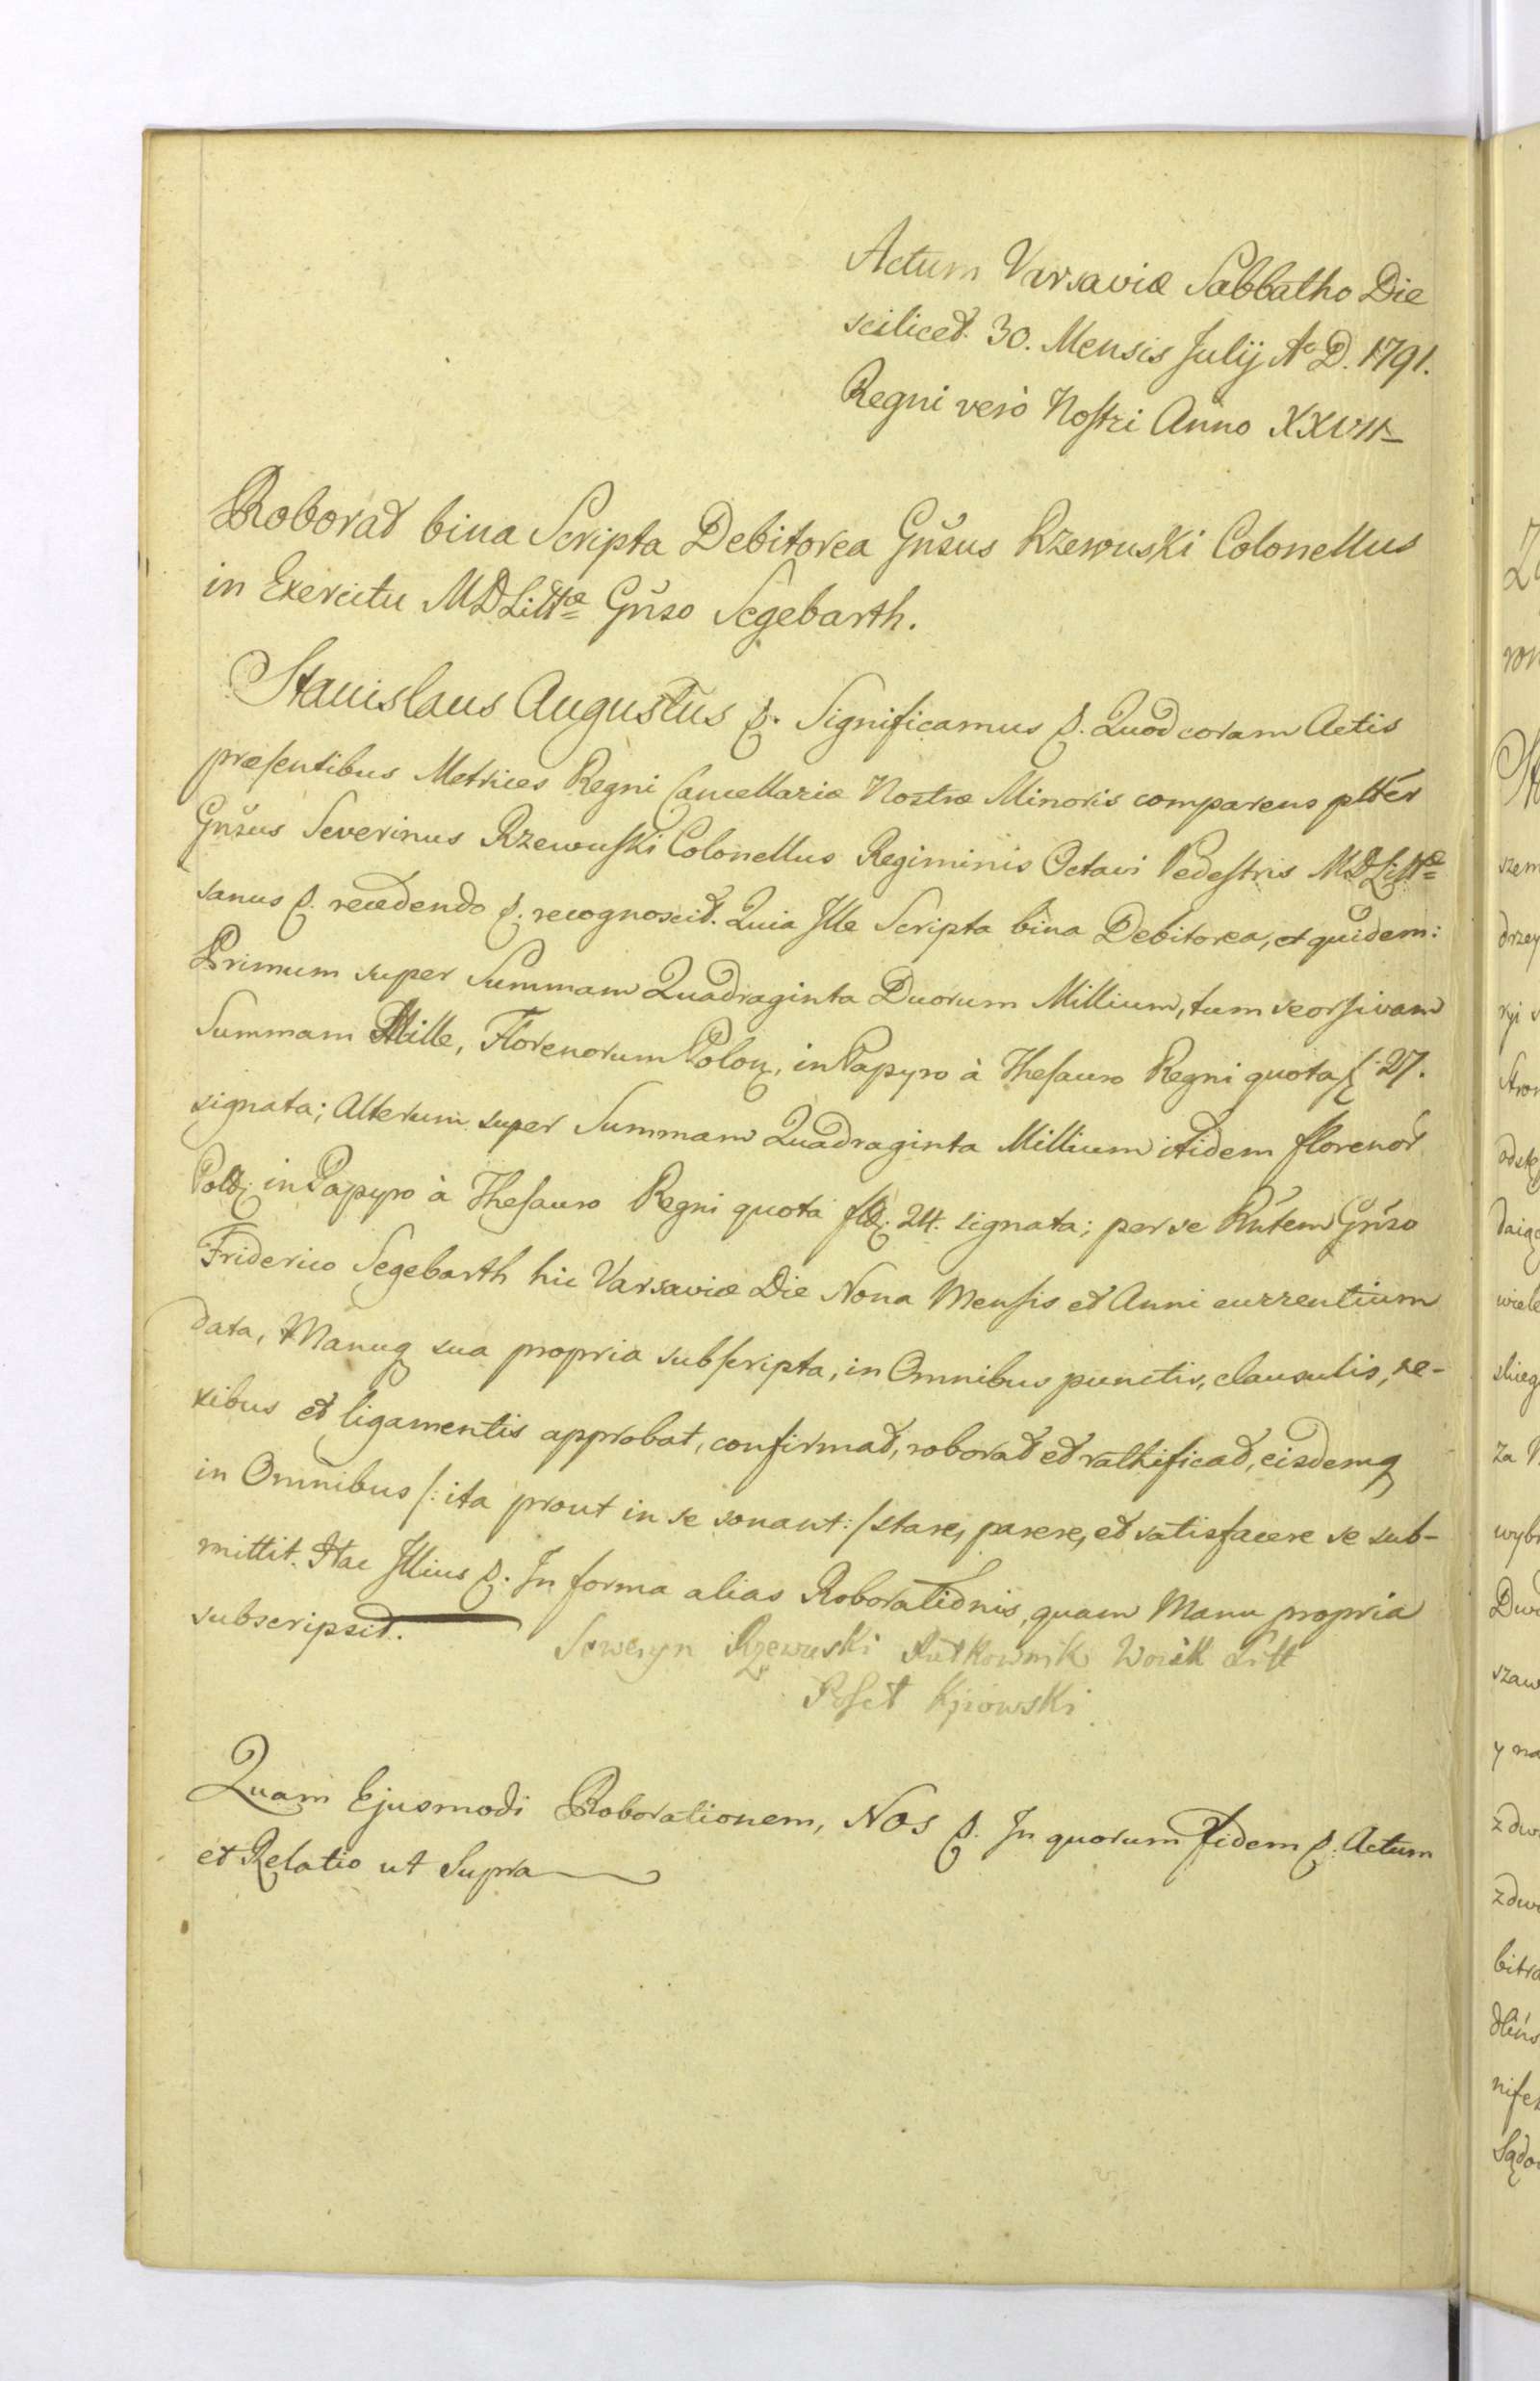 Actum Varsaviæ Sabbatho Die
scilicet 30. Mensis Julij Aº D. 1791.
Regni verò Nostri Anno XXVII
Roborat bina Scripta Debitorea Gnsus Rzewuski Colonellus
in Exercitu MDLittæ Gnso Segebarth.
Stanislaus Augustus &. Significamus &. Quod coram Actis
præsentibus Metrices Regni Cancellariæ Nostræ Minoris comparens plter
Gnsus Severinus Rzewuski Colonellus Regiminis Octavi Pedestris MDLittæ
sanus &. recedendo &. recognoscit. Quia Ille Scripta bina Debitorea, et quidem:
Primum super Summam Quadraginta Duorum Millium, tum seorsivam
Summam Mille, Florenorum Polon, in Papyro à Thesauro Regni quota f 27.
signata; Alterum super Summam Quadraginta Millium itidem florenor
Pol. in Papyro à Thesauro Regni quota fl. 24. signata; per se Rntem Gnso
Friderico Segebarth hic Varsaviæ Die Nona Mensis et Anni currentium
data, Manuq sua propria subscripta, in Omnibus punctis, clausulis, ne-
xibus et ligamentis approbat, confirmat, roborat et rathificat, eisdemq
in Omnibus /: ita prout in se sonant :/ stare, parere, et satisfacere se sub-
mittit. Hac Illius &. In forma alias Roborationis, quam Manu propria
subscripsit.
Seweryn Rzewuski Pułkownik Woisk Litt
Poseł Kijowski
Quam Ejusmodi Roborationem, Nos &. In quorum Fidem &. Actum
et Relatio ut Supra